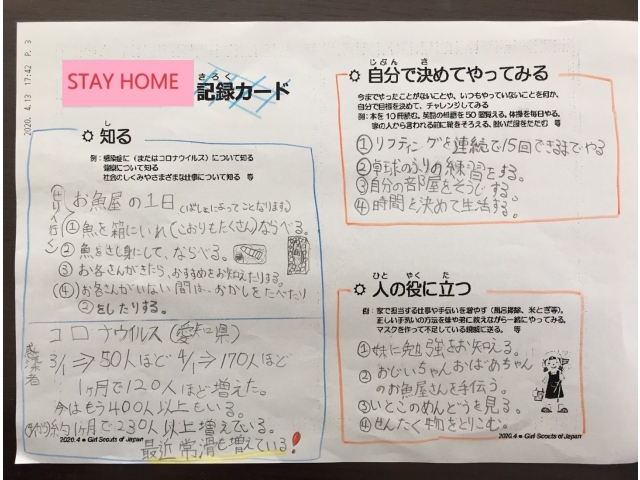 2020. 4.13 17:42 P. 3
STAY HOME
きろく
記録カード
し
知る
例：感染症に（またはコロナウイルス）について知る
健康について知る
社会のしくみやさまざまな仕事について知る 等
お魚屋の1日（ばしょによってことなります）
①魚を箱にいれ（こおりもたくさん）ならべる。
②魚をさし身にして、ならべる。
③お客さんがきたら、おすすめをお知えたりする。
④お客さんがいない間は、おかしをたべたり
②をしたりする。
コロナウイルス（愛知県）
感染者
3/1⇒50人ほど 4/1⇒170人ほど
1ヶ月で120人ほど増えた。
今はもう400人以上もいる。
約1ヶ月で230人以上増えている。
最近常滑も増えている！
2020.4 Girl Scouts of Japan
じぶん き
自分で決めてやってみる
今までやったことがないことや、いつもやっていないことを何か、
自分で目標を決めて、チャレンジしてみる
例：本を10冊読む。英語の単語を50個覚える。体操を毎日やる。
家の人から言われる前に靴をそろえる。脱いだ服をたたむ 等
①リフティングを連続で15回できるまでやる
②卓球のふりの練習をする。
③自分の部屋をそうじする。
④時間を決めて生活する。
ひと やく た
人の役に立つ
例：家で担当する仕事や手伝いを増やす（風呂掃除、米とぎ等）。
正しい手洗いの方法を妹や弟に教えながら一緒にやってみる。
マスクを作って不足している親戚に送る。 等
①妹に勉強をお知える。
②おじいちゃんおばあちゃん
のお魚屋さんを手伝う。
③いとこのめんどうを見る。
④せんたく物をとりこむ。
2020.4 Girl Scouts of Japan